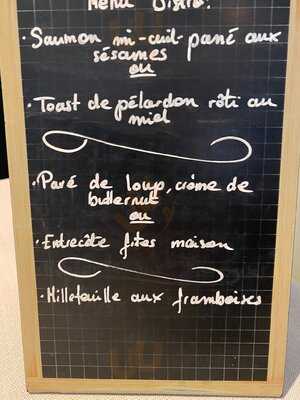 Menu Bistro:
• Saumon mi-cuit pané aux
sésames
ou
• Toast de pélardon rôti au
miel
• Pavé de loup, crème de
butternut
ou
• Entrecôte frites maison
• Millefeuille aux framboises